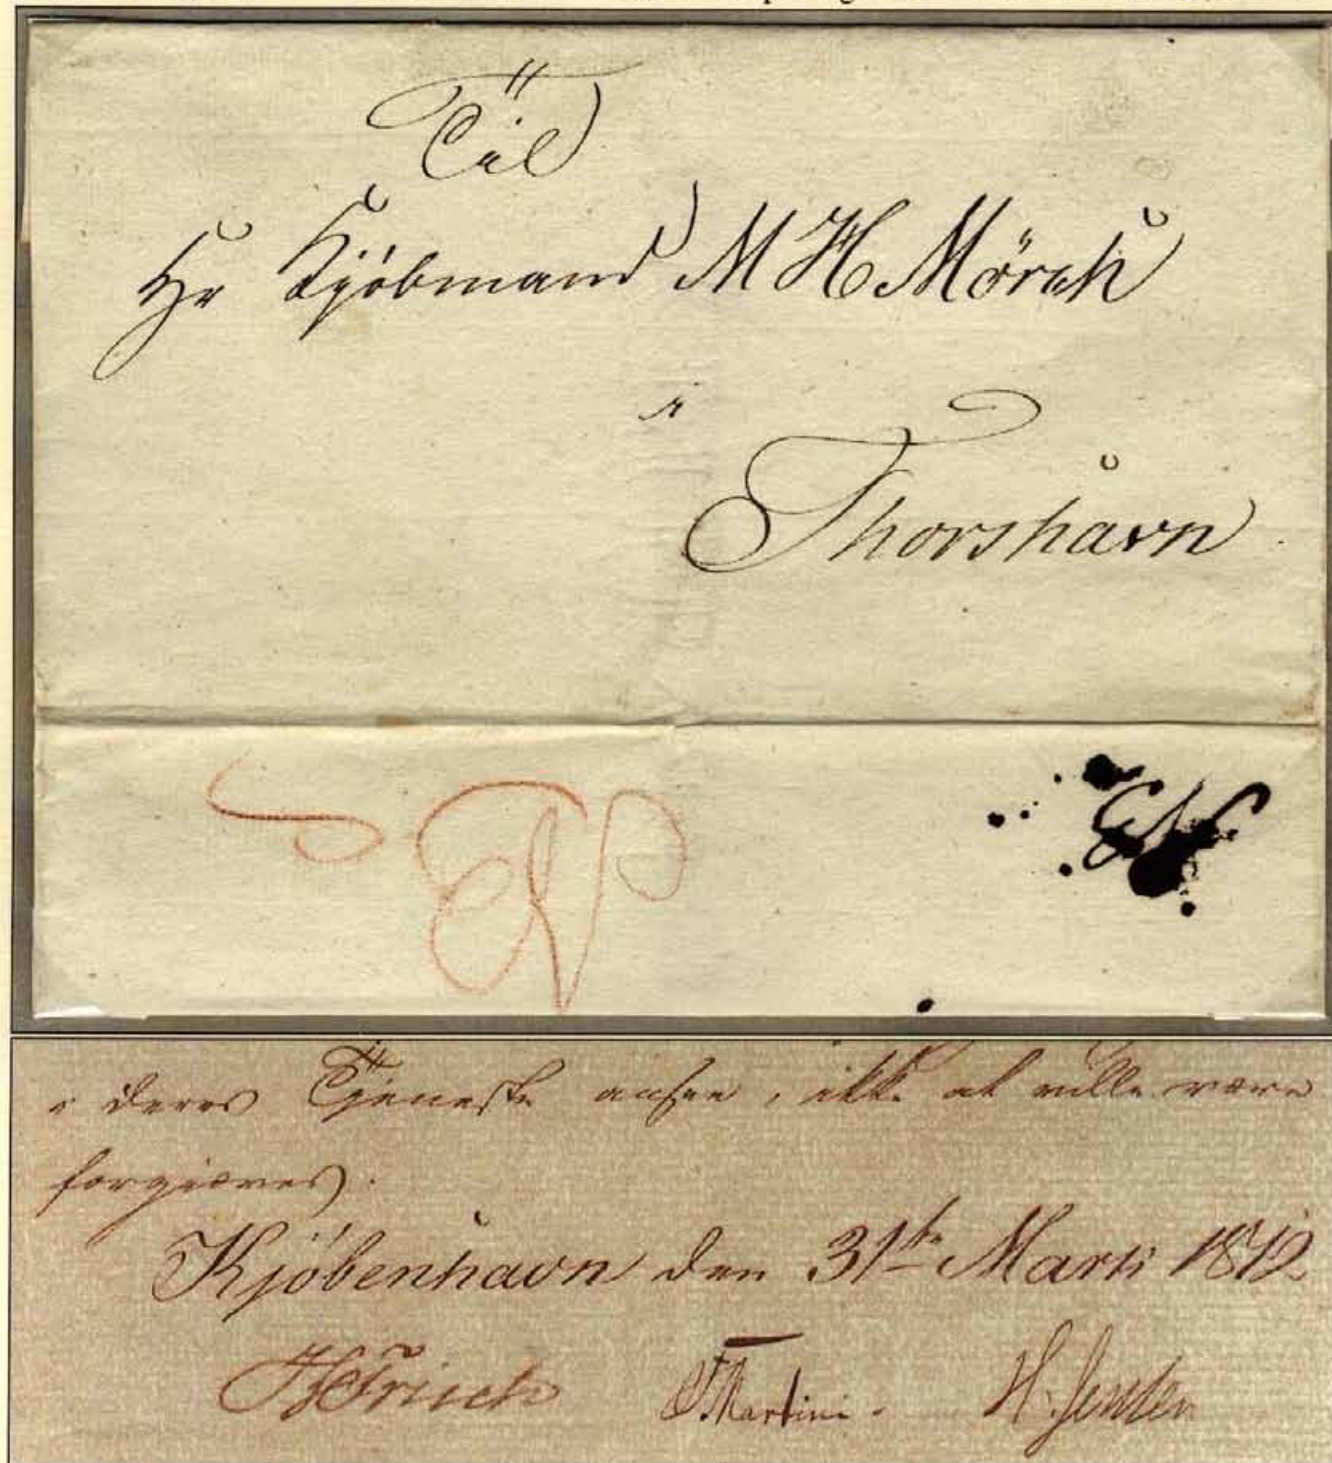 Til
Hr Kjöbmand M H Mörch
i
Thorshavn
deres Tjeneste ansee, ikke at ville være
forgiæves.
Kjöbenhavn den 31te Marts 1842
Martini. H. Jensen